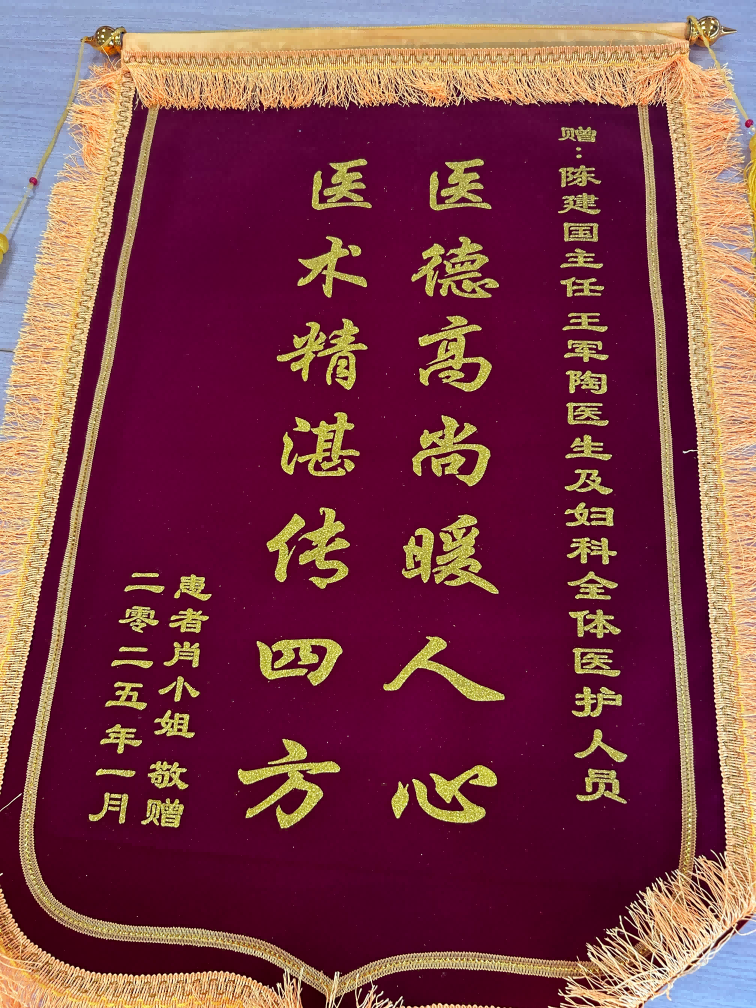 赠:陈建国主任王军陶医生及妇科全体医护人员
医德高尚暖人心
医术精湛传四方
患者肖小姐 敬赠
二零二五年一月